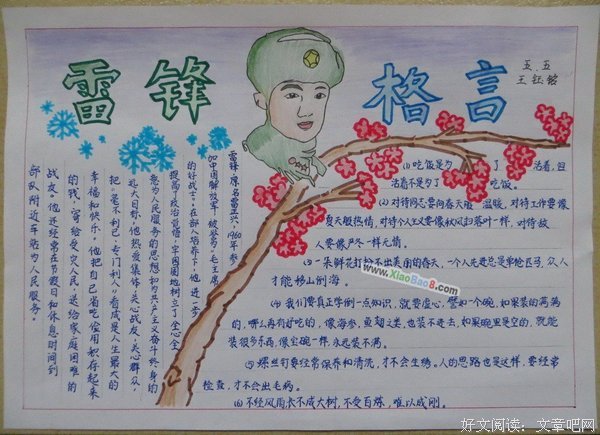 雷锋
格言
五.五
王钰
雷锋,原名雷正兴,1960年参
加中国解放军,被誉为"毛主席
的好战士"。在部队培养下,他进一步
提高了政治觉悟,牢固地树立了全心全
意为人民服务的思想和为共产主义奋斗终身的
远大目标。他热爱集体,关心战友,关心群众,
把"毫不利己,专门利人"看成是人生最大的
幸福和快乐。他把自己省吃俭用积存起来
的钱,寄给受灾人民,送给家庭困难的
战友。他还经常在节假日和休息时间到
部队附近车站为人民服务。
(1)吃饭是为了活着,但
活着不是为了吃饭。
(2)对待同志要向春天般温暖,对待工作要像
夏天般热情,对待个人主义要像秋风扫落叶一样,对待敌
人要像严冬一样无情。
(3)一朵鲜花打扮不出美丽的春天,一个人先进总是单枪匹马,众人
才能移山倒海。
(4)我们要真正学倒一点知识,就要虚心,譬如一个碗,如果装的满满
的,哪么再有好吃的,像海参,鱼翅之类,也装不进去,如果碗里是空的,就能
装很多东西,像宝碗一样,永远装不满。
(5)螺丝钉要经常保养和清洗,才不会生锈。人的思路也是这样,要经常
检查,才不会出毛病。
(6)不经风雨长不成大树,不受百炼,难以成刚。
www.XiaoBao8.com
好文阅读:文章吧网